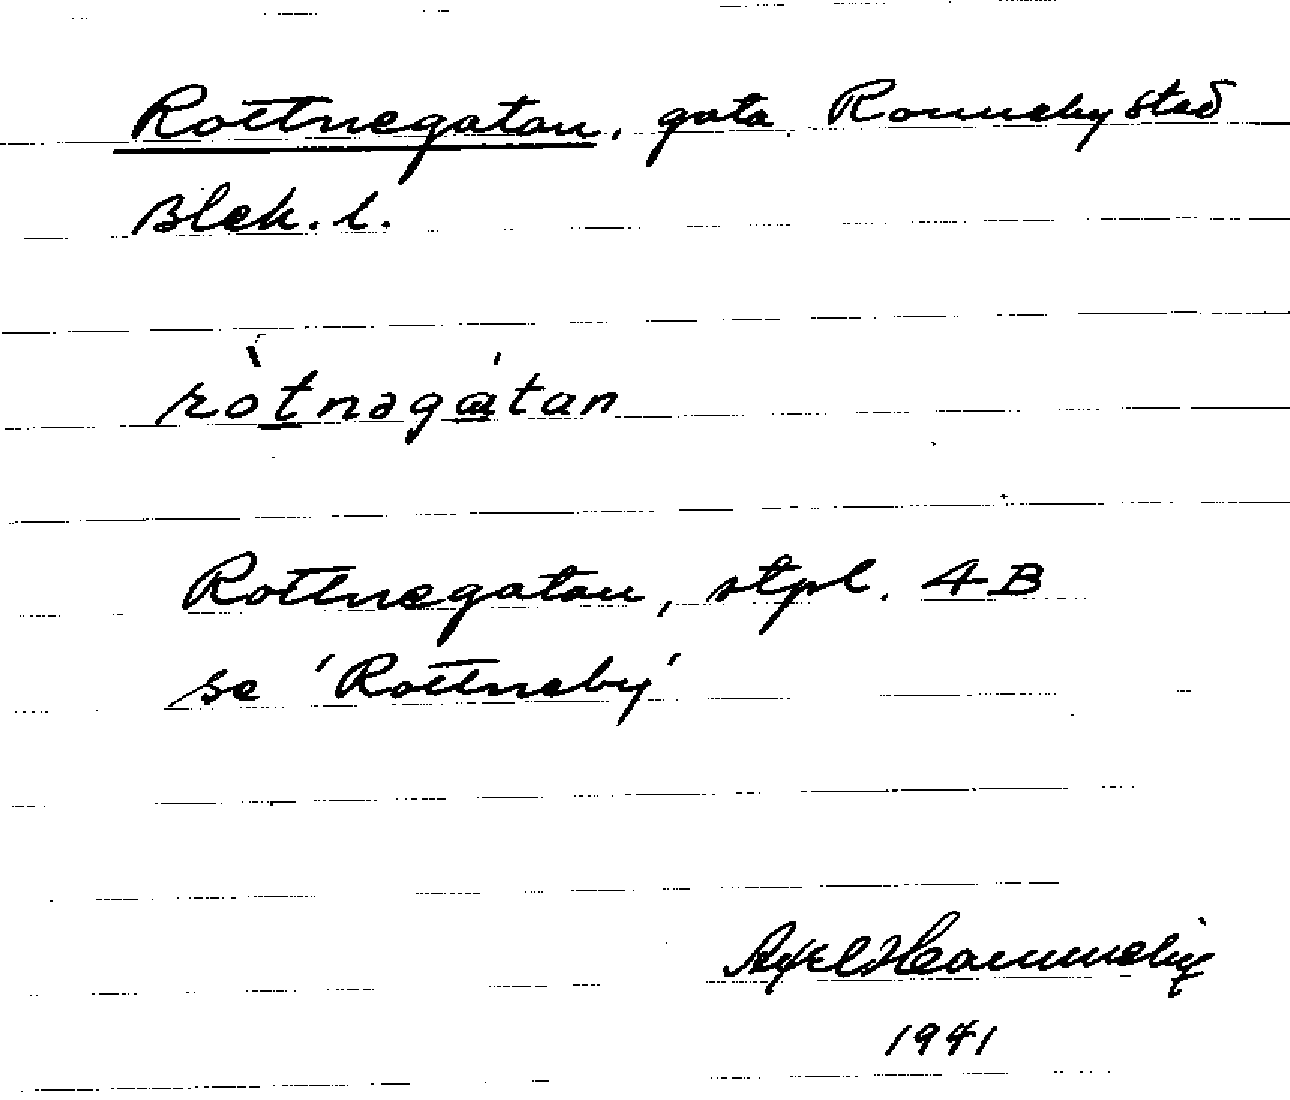 Rottnegatan, gata. Ronneby stad
Blek. l.
ròtnəgátan
Rottnegatan, stpl. 4B
se 'Rottneby'
Axel Hammeby
1941